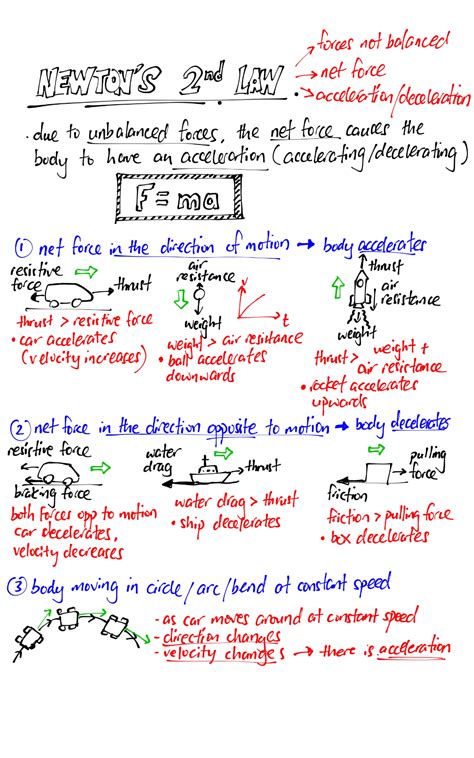 NEWTON'S 2nd LAW
→ forces not balanced
→ net force
→ acceleration/deceleration
• due to unbalanced forces, the net force causes the
body to have an acceleration (accelerating/decelerating)
F = ma
① net force in the direction of motion → body accelerates
resistive
force
thrust
thrust > resistive force
• car accelerates
(velocity increases)
air
resistance
weight
v
t
weight > air resistance
• ball accelerates
downwards
thrust
air
resistance
weight
thrust > weight +
air resistance
• rocket accelerates
upwards
② net force in the direction opposite to motion → body decelerates
resistive force
braking force
both forces opp to motion
car decelerates,
velocity decreases
water
drag
thrust
water drag > thrust
• ship decelerates
pulling
force
friction
friction > pulling force
• box decelerates
③ body moving in circle/arc/bend at constant speed
- as car moves around at constant speed
- direction changes
- velocity changes → there is acceleration